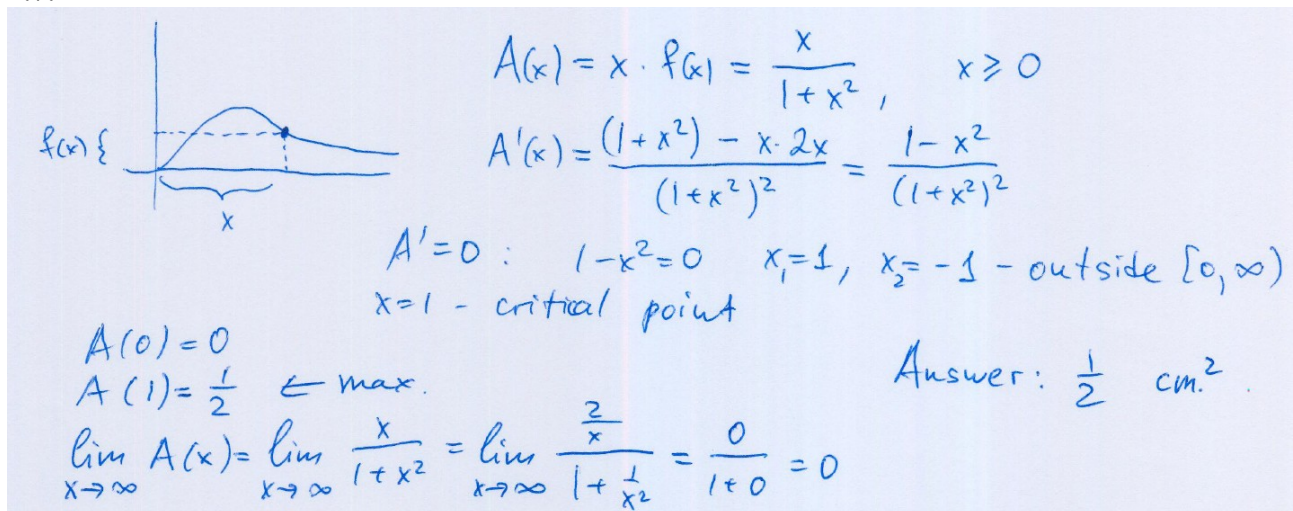 A(x) = x · f(x) = x / (1 + x²), x ⩾ 0
f(x) {
A'(x) = ((1 + x²) − x · 2x) / (1 + x²)² = (1 − x²) / (1 + x²)²
x
A' = 0 : 1 − x² = 0 x₁ = 1, x₂ = −1 – outside [0, ∞)
x = 1 – critical point
A(0) = 0
A(1) = 1/2 ← max.
Answer: 1/2 cm.²
lim x→∞ A(x) = lim x→∞ x / (1 + x²) = lim x→∞ (2/x) / (1 + 1/x²) = 0 / (1 + 0) = 0